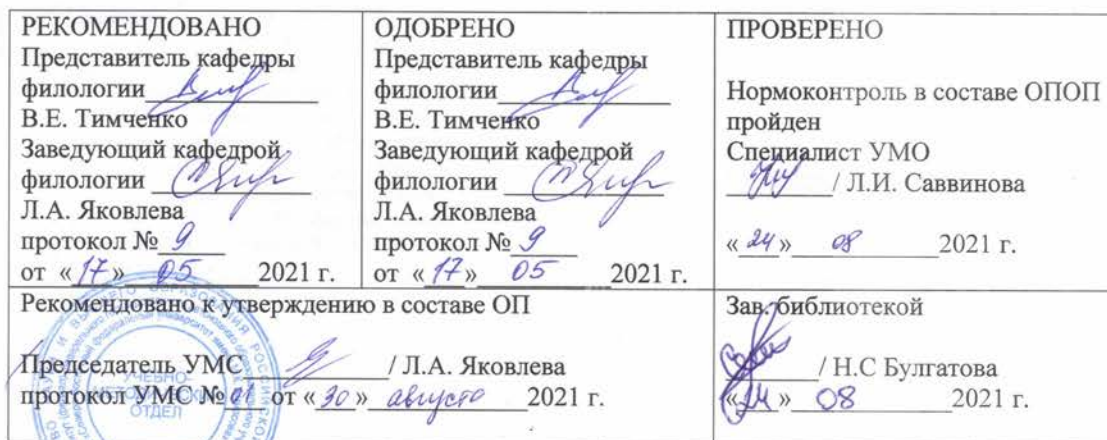 РЕКОМЕНДОВАНО
Представитель кафедры
филологии
В.Е. Тимченко
Заведующий кафедрой
филологии
Л.А. Яковлева
протокол № 9
от «17» 05 2021 г.
ОДОБРЕНО
Представитель кафедры
филологии
В.Е. Тимченко
Заведующий кафедрой
филологии
Л.А. Яковлева
протокол № 9
от «17» 05 2021 г.
ПРОВЕРЕНО
Нормоконтроль в составе ОПОП
пройден
Специалист УМО
/ Л.И. Саввинова
«24» 08 2021 г.
Рекомендовано к утверждению в составе ОП
Председатель УМС / Л.А. Яковлева
протокол УМС № 01 от «30» августа 2021 г.
УЧЕБНО-
МЕТОДИЧЕСКИЙ
ОТДЕЛ
Зав. библиотекой
/ Н.С Булгатова
«24» 08 2021 г.